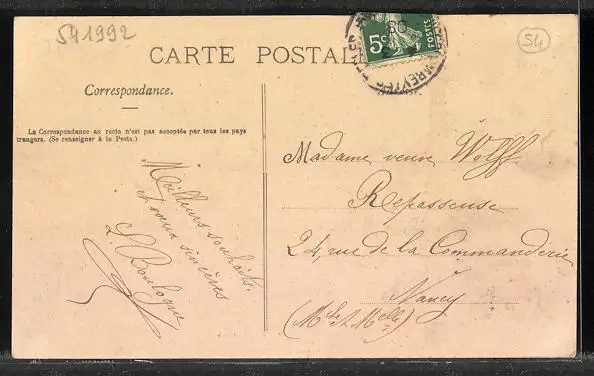 541992
CARTE POSTALE
5c
POSTES
54
Correspondance.
La Correspondance au recto n'est pas acceptée par tous les pays
trangers. (Se renseigner à la Poste.)
Meilleurs souhaits.
et vœux sincères
L. Boulogne
Madame veuve Wolff
Repasseuse
24, rue de la Commanderie
Nancy
(Mthe & Mlle)